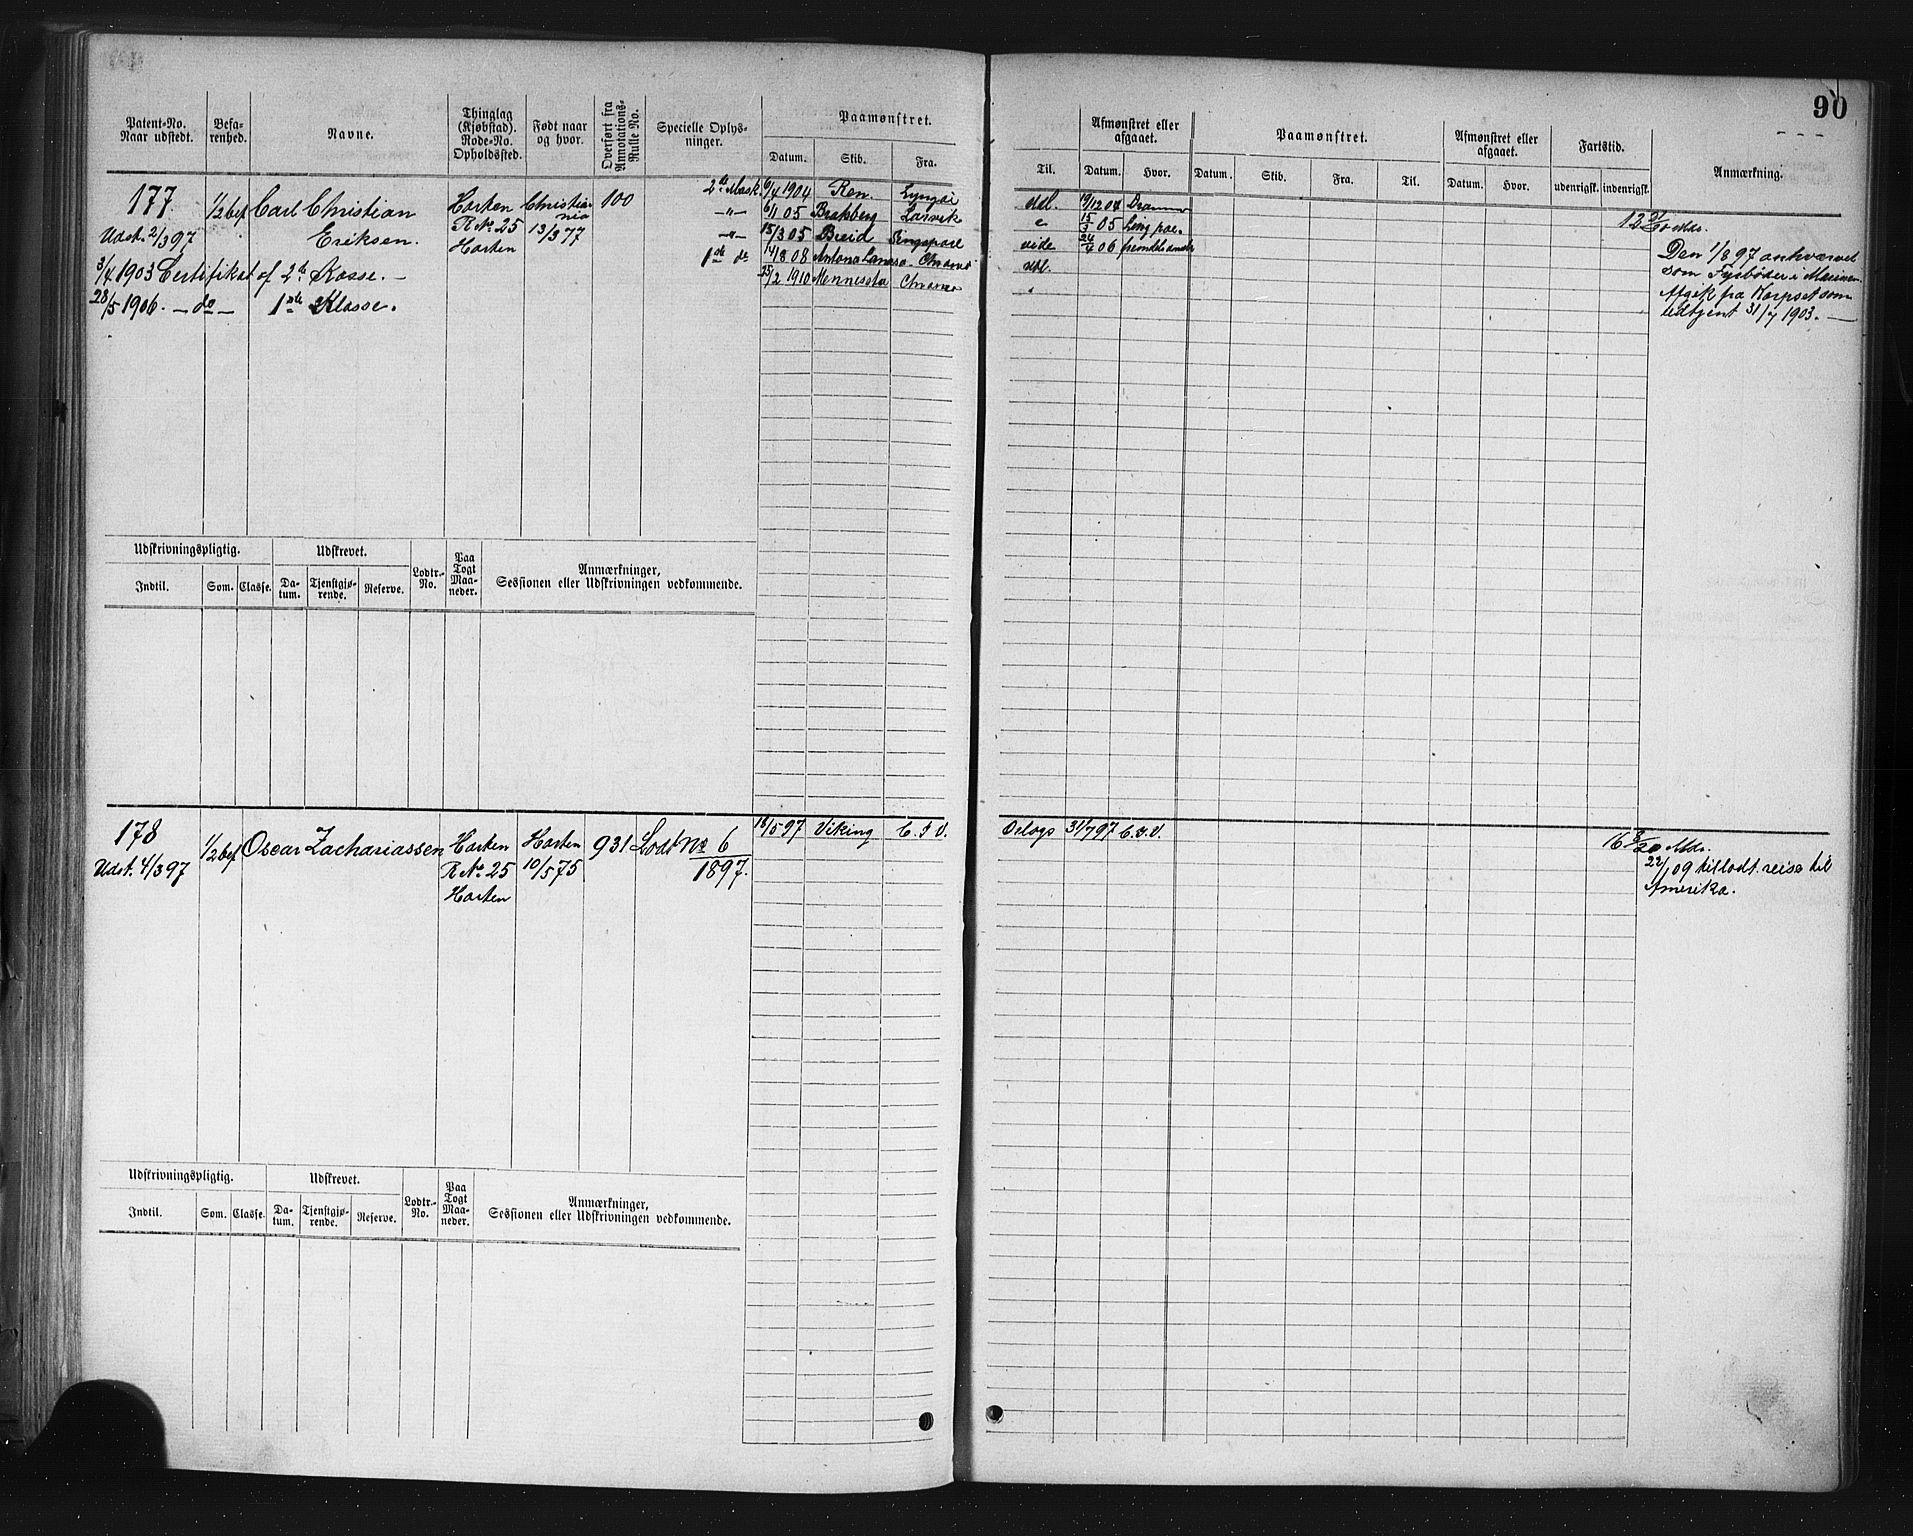 90
Patent-No. Naar udstedt.
Befa-renhed.
Navne.
Thinglag (Kjøbstad). Rode-No. Opholdssted.
Født naar og hvor.
Overført fra Annotations-Rulle No.
Specielle Oplys-ninger.
Paamønstret.
Datum. Skib. Fra. Til.
Afmønstret eller afgaaet.
Datum. Hvor.
Paamønstret.
Datum. Skib. Fra. Til.
Afmønstret eller afgaaet.
Datum. Hvor.
Fartstid.
udenrigsk. indenrigsk.
Anmærkning.
177 1/2 bef Carl Christian Horten Christia- 100 2de Mask 6/4 1904 Ren. Lyngør Udl. 19/12 04
Eriksen. R No. 25 nia 13/3 77 -"- 6/1 05 Bratsberg Larvik " 15/3 05
Udst. 2/3 97 Horten -"- 15/3 05 Breid Singapore
3/4 1903 Certifikat af 2de Klasse. — 1ste do 14/8 08
28/5 1906. — do — 1ste Klasse. 25/2 1910
Mdr.
Den 1/8 97 anhvervet
som Fyrbøder i Marinen.
Afgik fra Korpset som
udtjent 31/7 1903. —
Udskrivningspligtig. Udskrevet. Lodtr.-No. Paa Togt Maa-neder. Anmærkninger, Sessionen eller Udskrivningen vedkommende.
Indtil. Som. Classe. Da-tum. Tjenstgjø-rende. Reserve.
178 1/2 bef Oscar Zachariassen Horten Horten 931 Lodt No 6 18/5 97 Viking C. J. V. Orlogs 31/7 97 C. J. V.
Udst. 4/3 97 R No. 25 10/5 75 1897.
Horten
16 8/20 Mdr.
22/1 09 tillodt. reise til
Amerika.
Udskrivningspligtig. Udskrevet. Lodtr.-No. Paa Togt Maa-neder. Anmærkninger, Sessionen eller Udskrivningen vedkommende.
Indtil. Som. Classe. Da-tum. Tjenstgjø-rende. Reserve.